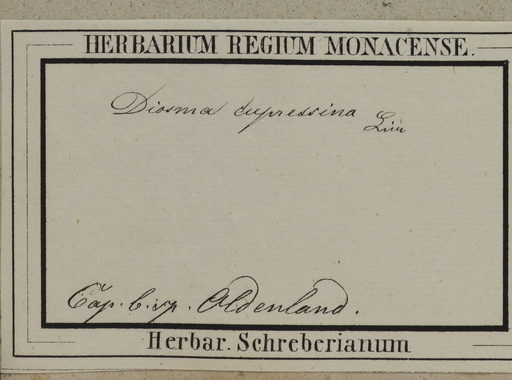 HERBARIUM REGIUM MONACENSE.
Diosma cupressina Lin
Cap. b. sp. Oldenland.
Herbar. Schreberianum